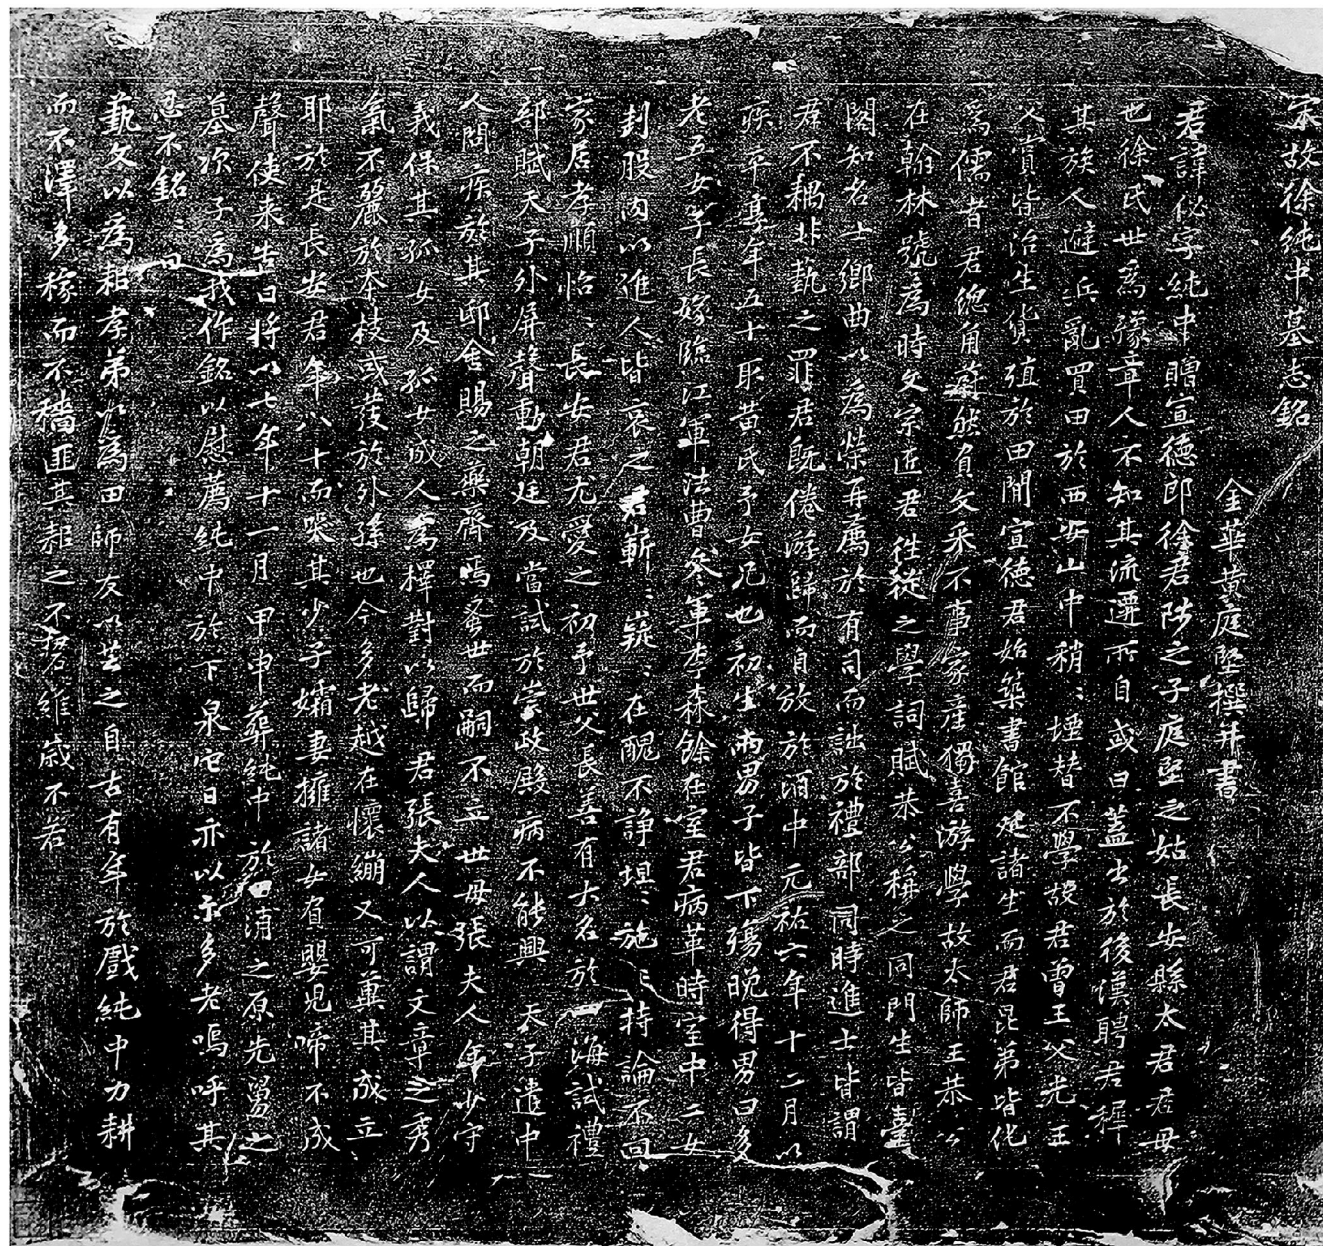 宋故徐純中墓志銘
金華黃庭堅撰并書
君諱佖字純中贈宣德郎徐君陟之子庭堅之姑長安縣太君君母
也徐氏世為豫章人不知其流遷所自或曰蓋出於後漢聘君稺
其族人避兵亂買田於西安山中稍〻堙替不學誤君曾王父光王
父賞皆治生貨殖於田閒宣德君始築書館延諸生而君昆弟皆化
為儒者君緫角蔚然負文采不事家產獨喜游學故太師王恭公
在翰林號為時文宗匠君徃從之學詞賦恭公稱之同門生皆臺
閣知名士鄉曲以為榮再薦於有司而詘於禮部同時進士皆謂
君不耦非埶之罪君旣倦游歸而自放於酒中元祐六年十二月以
疾卒享年五十取黃氏予女兄也初生兩男子皆下殤晚得男曰多
老五女子長嫁臨江軍法曹叅軍李森餘在室君病革時室中二女
刲股肉以進人皆哀之君嶄〻嶷〻在醜不諍坦〻施〻持論不回
家居孝順怡〻長安君尤愛之初予世父長善有大名於海試禮
部賦天子外屏聲動朝廷及當試於崇政殿病不能興天子遣中
人問疾於其邸舍賜之藥齊焉蚤世而嗣不立世母張夫人年少守
義保其孤女及孤女成人為擇對以歸君張夫人以謂文章之秀
氣不麗於本枝或發於外孫也今多老越在懷繃又可冀其成立
耶於是長安君年八十而哭其少子孀妻擁諸女負嬰兒啼不成
聲使來告曰將以七年十一月甲申葬純中於□清之原先舅之
墓次子為我作銘以慰薦純中於下泉它日亦以示多老嗚呼其
忍不銘〻曰
藝文以為耜孝弟以為田師友以芸之自古有年於戲純中力耕
而不澤多稼而不穡匪其耜之不君維歲不若